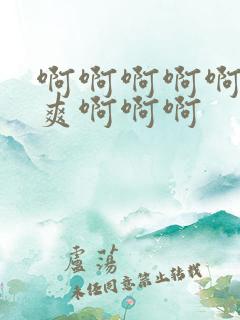 啊啊啊啊啊
爽啊啊啊
盧荡
未经同意禁止转载